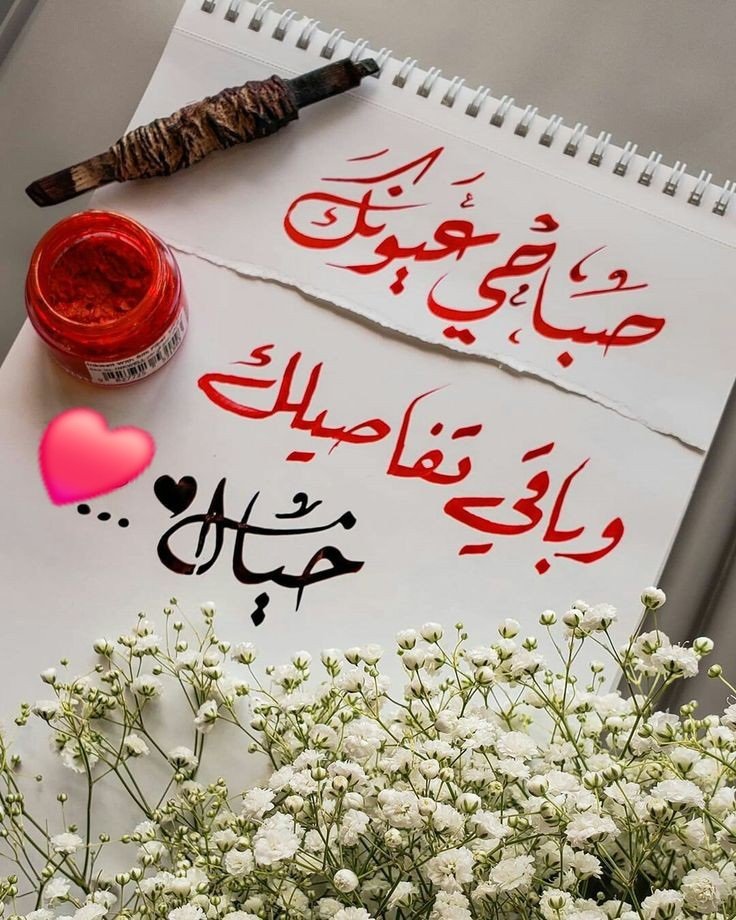 صباحي عيونك
وباقي تفاصيلك
حياة